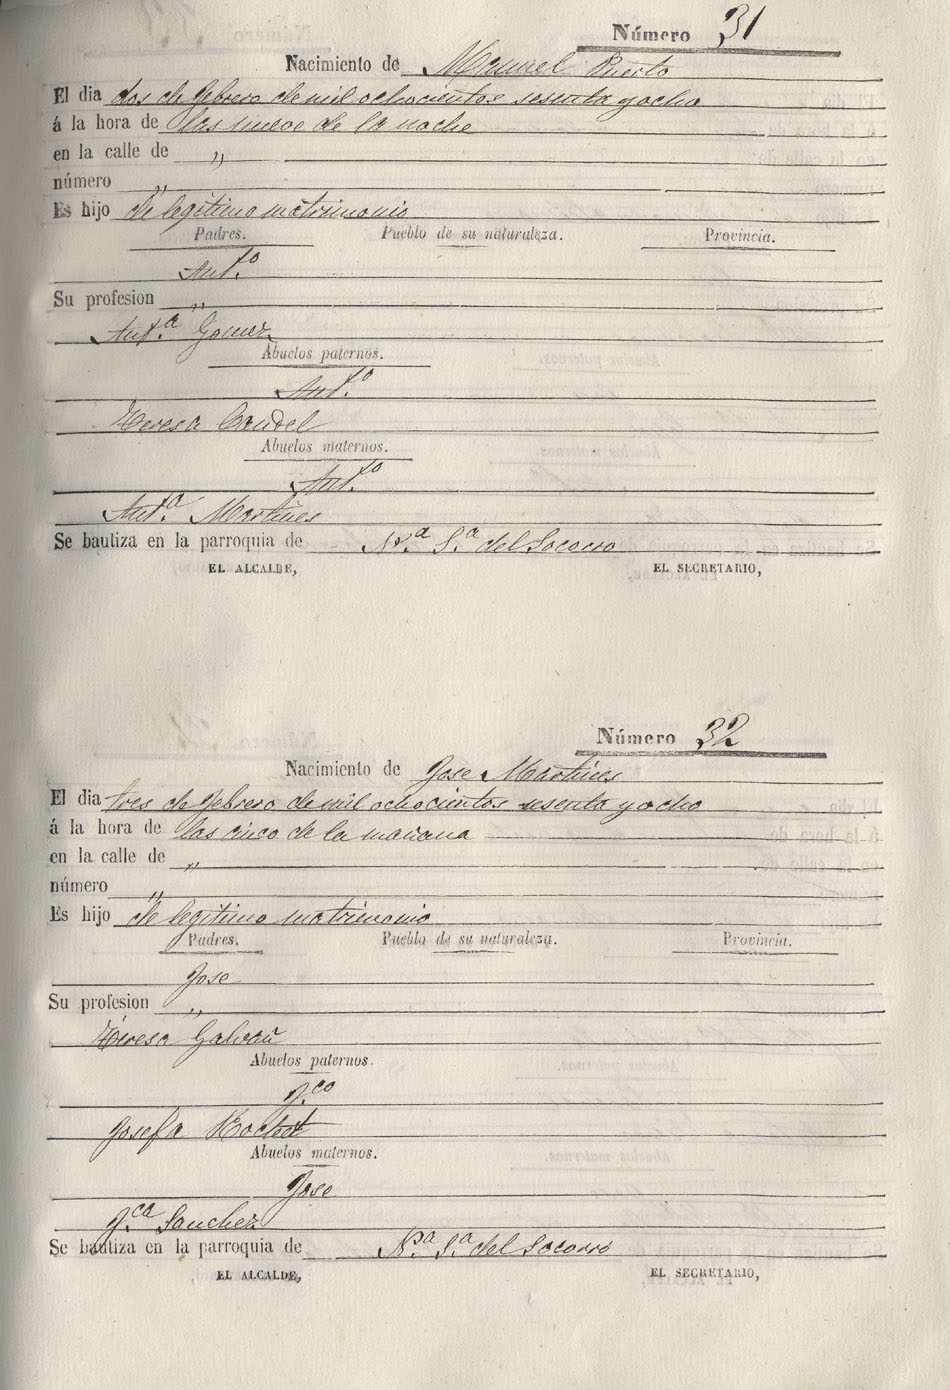 Número 31
Nacimiento de Manuel Puerto
El dia dos de febrero de mil ochocientos sesenta y ocho
á la hora de las nueve de la noche
en la calle de "
número "
Es hijo de legitimo matrimonio
Padres. Pueblo de su naturaleza. Provincia.
Ant.º
Su profesion "
Ant.ª Gomez
Abuelos paternos.
Ant.º
Teresa Candel
Abuelos maternos.
Ant.º
Ant.ª Martines
Se bautiza en la parroquia de Nª Sª del Socorro
EL ALCALDE, EL SECRETARIO,
Número 32
Nacimiento de Jose Martines
El dia tres de febrero de mil ochocientos sesenta y ocho
á la hora de las cinco de la mañana
en la calle de "
número "
Es hijo de legitimo matrimonio
Padres. Pueblo de su naturaleza. Provincia.
Jose
Su profesion "
Teresa Galvañ
Abuelos paternos.
F.co
Josefa
Abuelos maternos.
Jose
F.ca Sanchez
Se bautiza en la parroquia de Nª Sª del Socorro
EL ALCALDE, EL SECRETARIO,